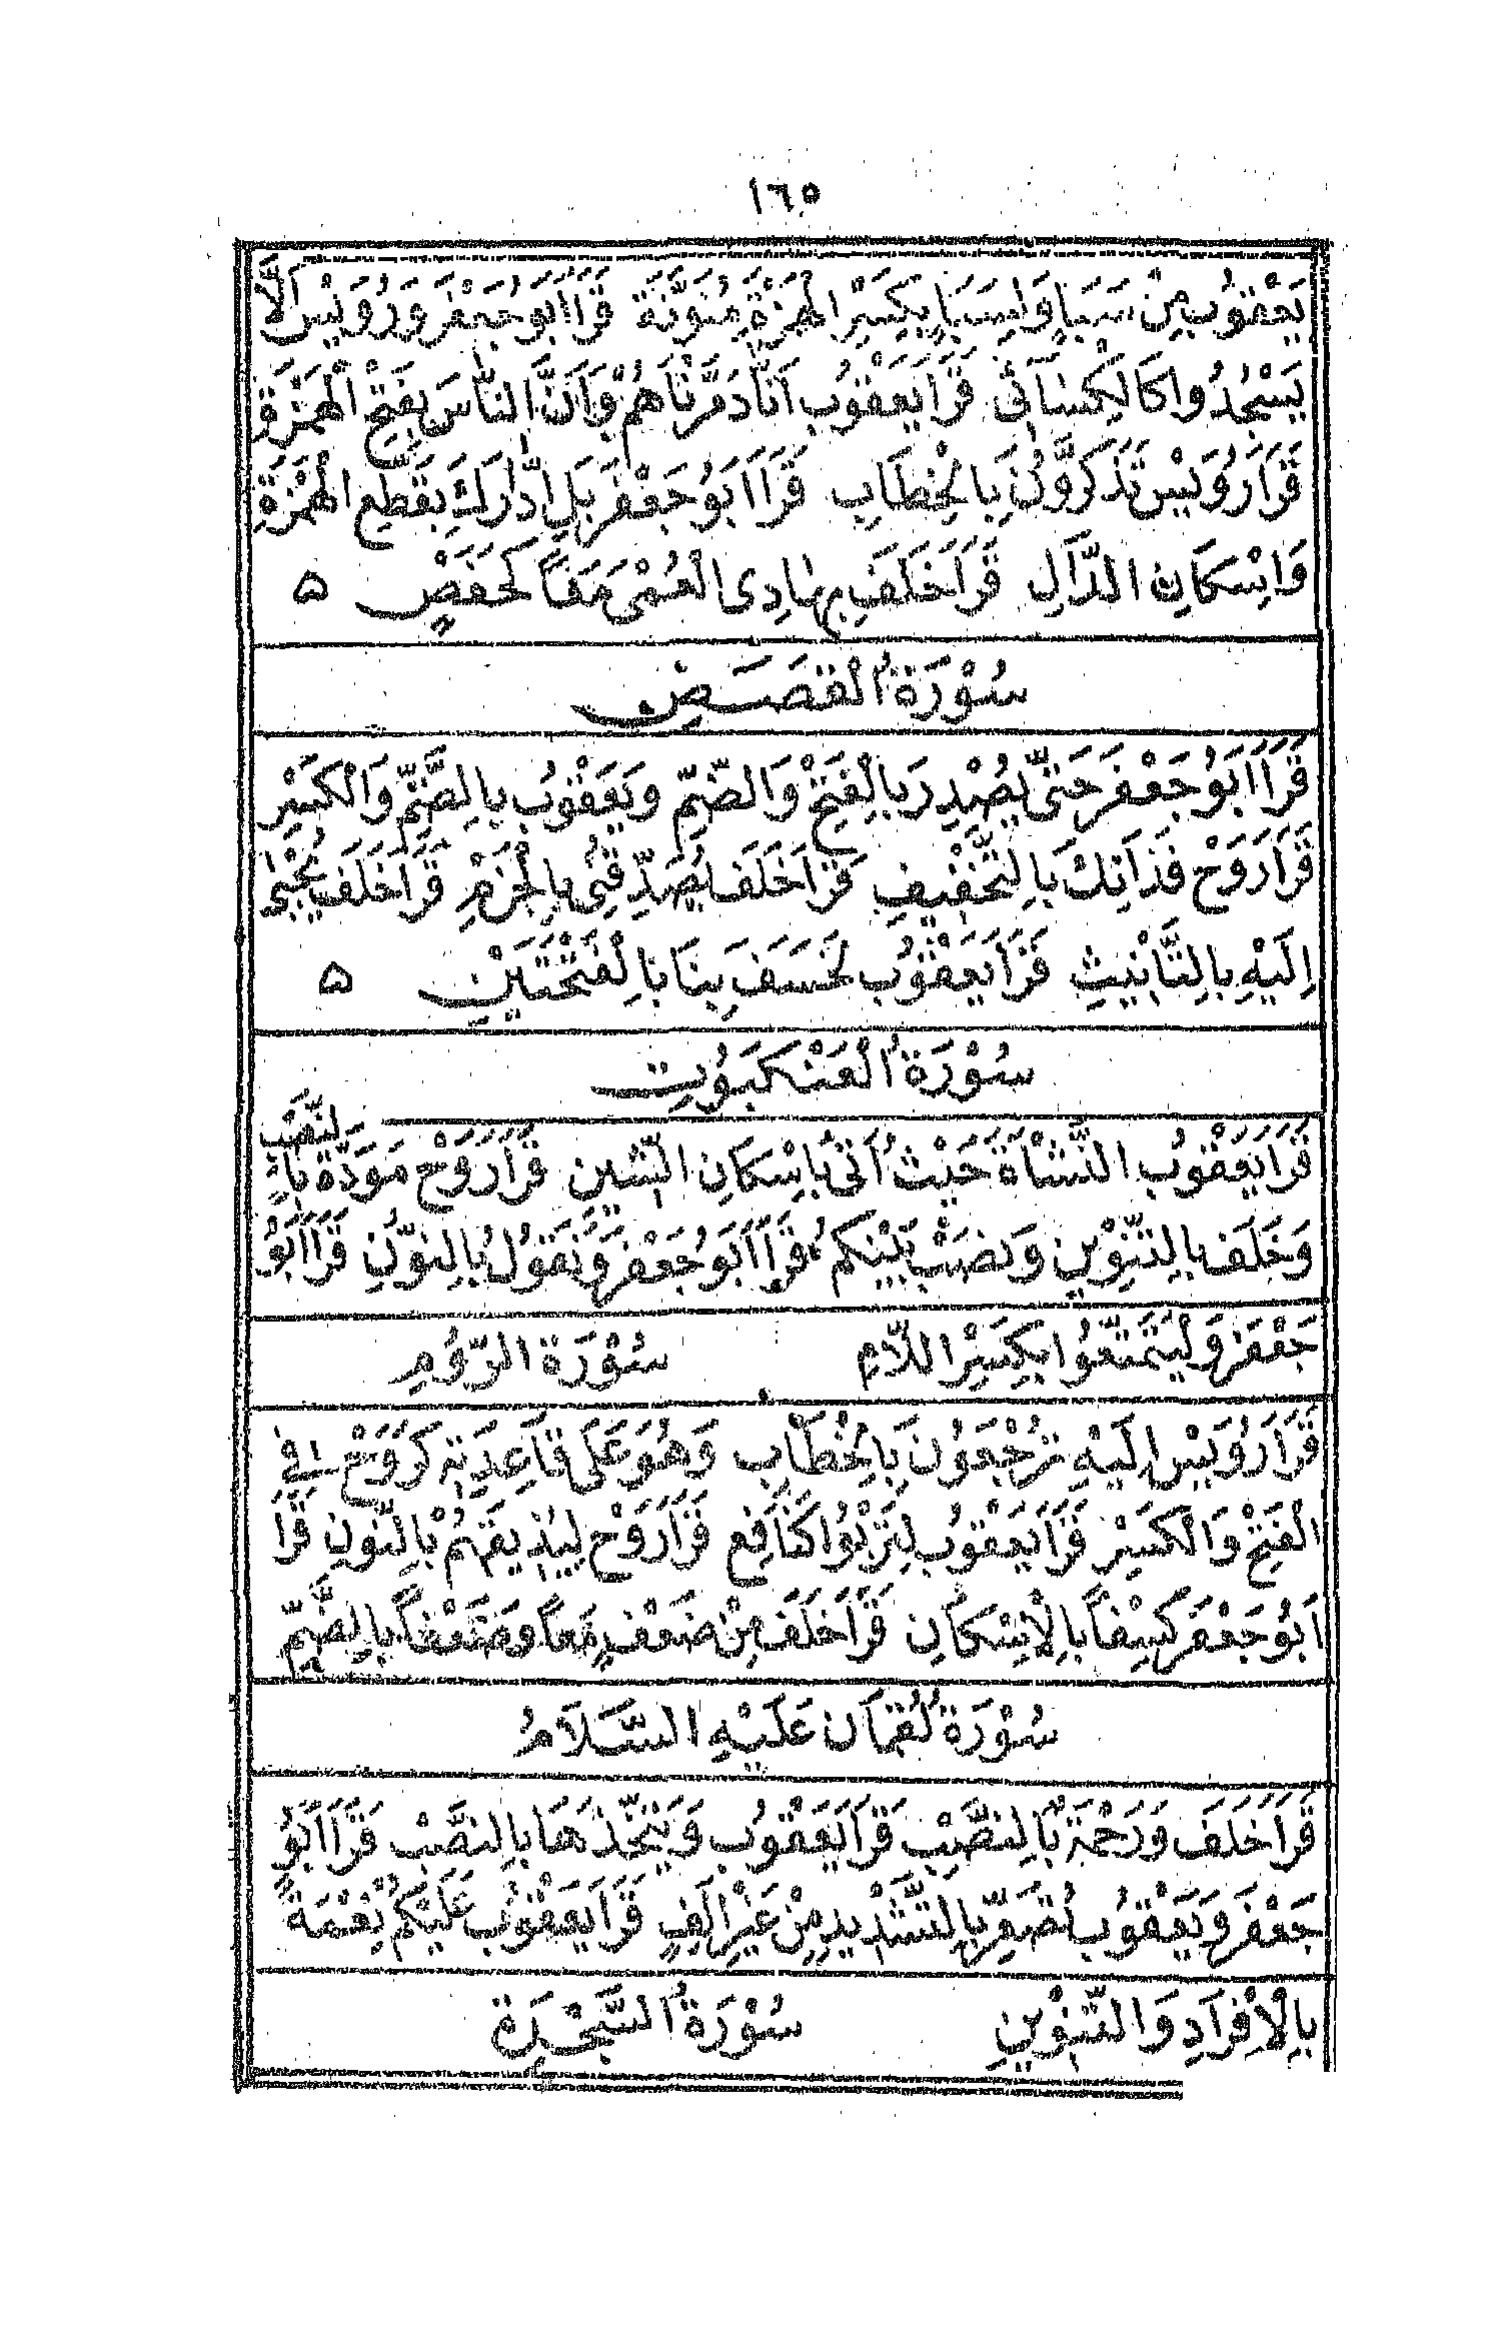 ١٦٥
يَعْقُوْبُ مِنْ سَبَاٍ وَلِسَبَاٍ بِكَسْرِ الْهَمْزَةِ مُنَوَّنَةً قَرَأَ اَبُوْ جَعْفَرَ وَرُوَيْسٌ اَلَّا
يَسْجُدُوا كَالْكِسَائِى قَرَأَ يَعْقُوْبُ اَنَّا دَمَّرْنَاهُمْ وَاَنَّ النَّاسَ بِفَتْحِ الْهَمْزَةِ
قَرَأَ رُوَيْسٌ تَذَكَّرُوْنَ بِالْخِطَابِ قَرَأَ اَبُوْ جَعْفَرَ بَلْ اَدْرَكَ بِقَطْعِ الْهَمْزَةِ
وَاِسْكَانِ الدَّالِ قَرَأَ خَلَفٌ بِهٰدِى الْعُمْىِ مَعًا كَحَفْصٍ ۵
سُوْرَةُ الْقَصَصِ
قَرَأَ اَبُوْ جَعْفَرَ حَتّٰى يَصْدُرَ بِالْفَتْحِ وَالضَّمِّ وَيَعْقُوْبُ بِالضَّمِّ وَالْكَسْرِ
قَرَأَ رَوْحٌ فَذَانِكَ بِالتَّخْفِيْفِ قَرَأَ خَلَفٌ يُصَدِّقْنِى بِالْجَزْمِ قَرَأَ خَلَفٌ يُجْبٰى
اِلَيْهِ بِالتَّانِيْثِ قَرَأَ يَعْقُوْبُ لَخَسَفَ بِنَا بِالْفَتْحَتَيْنِ ۵
سُوْرَةُ الْعَنْكَبُوْتِ
لنَّصْبِ
قَرَأَ يَعْقُوْبُ النَّشْاَةَ حَيْثُ اَتٰى بِاِسْكَانِ الشِّيْنِ قَرَأَ رَوْحٌ مَوَدَّةَ بِا
وَخَلَفٌ بِالتَّنْوِيْنِ وَنَصْبِ بَيْنَكُمْ قَرَأَ اَبُوْ جَعْفَرَ وَنَقُوْلُ بِالنُّوْنِ قَرَأَ اَبُوْ
جَعْفَرَ وَلِيَتَمَتَّعُوْا بِكَسْرِ اللَّامِ سُوْرَةُ الرُّوْمِ
قَرَأَ رُوَيْسٌ اِلَيْهِ تُرْجَعُوْنَ بِالْخِطَابِ وَهُوَ عَلٰى قَاعِدَتِهٖ كَرَوْحٍ فِى
الْفَتْحِ وَالْكَسْرِ قَرَأَ يَعْقُوْبُ لِتُرْبُوْا كَنَافِعٍ قَرَأَ رَوْحٌ لِنُذِيْقَهُمْ بِالنُّوْنِ قَرَأَ
اَبُوْ جَعْفَرَ كِسْفًا بِالْاِسْكَانِ قَرَأَ خَلَفٌ مِنْ ضُعْفٍ مَعًا وَضُعْفًا بِالضَّمِّ
سُوْرَةُ لُقْمَانَ عَلَيْهِ السَّلَامُ
قَرَأَ خَلَفٌ وَرَحْمَةً بِالنَّصْبِ قَرَأَ يَعْقُوْبُ وَيَتَّخِذَهَا بِالنَّصْبِ قَرَأَ اَبُوْ
جَعْفَرَ وَيَعْقُوْبُ تُصَعِّرْ بِالتَّشْدِيْدِ مِنْ غَيْرِ اَلِفٍ قَرَأَ يَعْقُوْبُ عَلَيْكُمْ نِعْمَةً
بِالْاِفْرَادِ وَالتَّنْوِيْنِ سُوْرَةُ السَّجْدَةِ